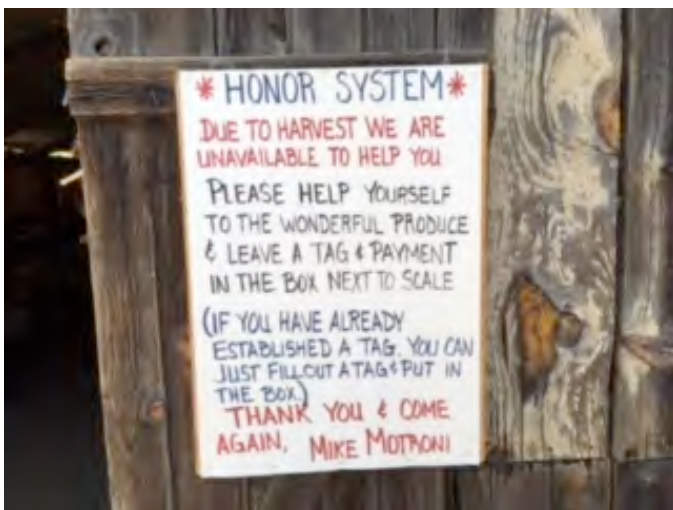 * HONOR SYSTEM *
DUE TO HARVEST WE ARE
UNAVAILABLE TO HELP YOU
PLEASE HELP YOURSELF
TO THE WONDERFUL PRODUCE
& LEAVE A TAG & PAYMENT
IN THE BOX NEXT TO SCALE
(IF YOU HAVE ALREADY
ESTABLISHED A TAG. YOU CAN
JUST FILL OUT A TAG & PUT IN
THE BOX.)
THANK YOU & COME
AGAIN. MIKE MOTRONI